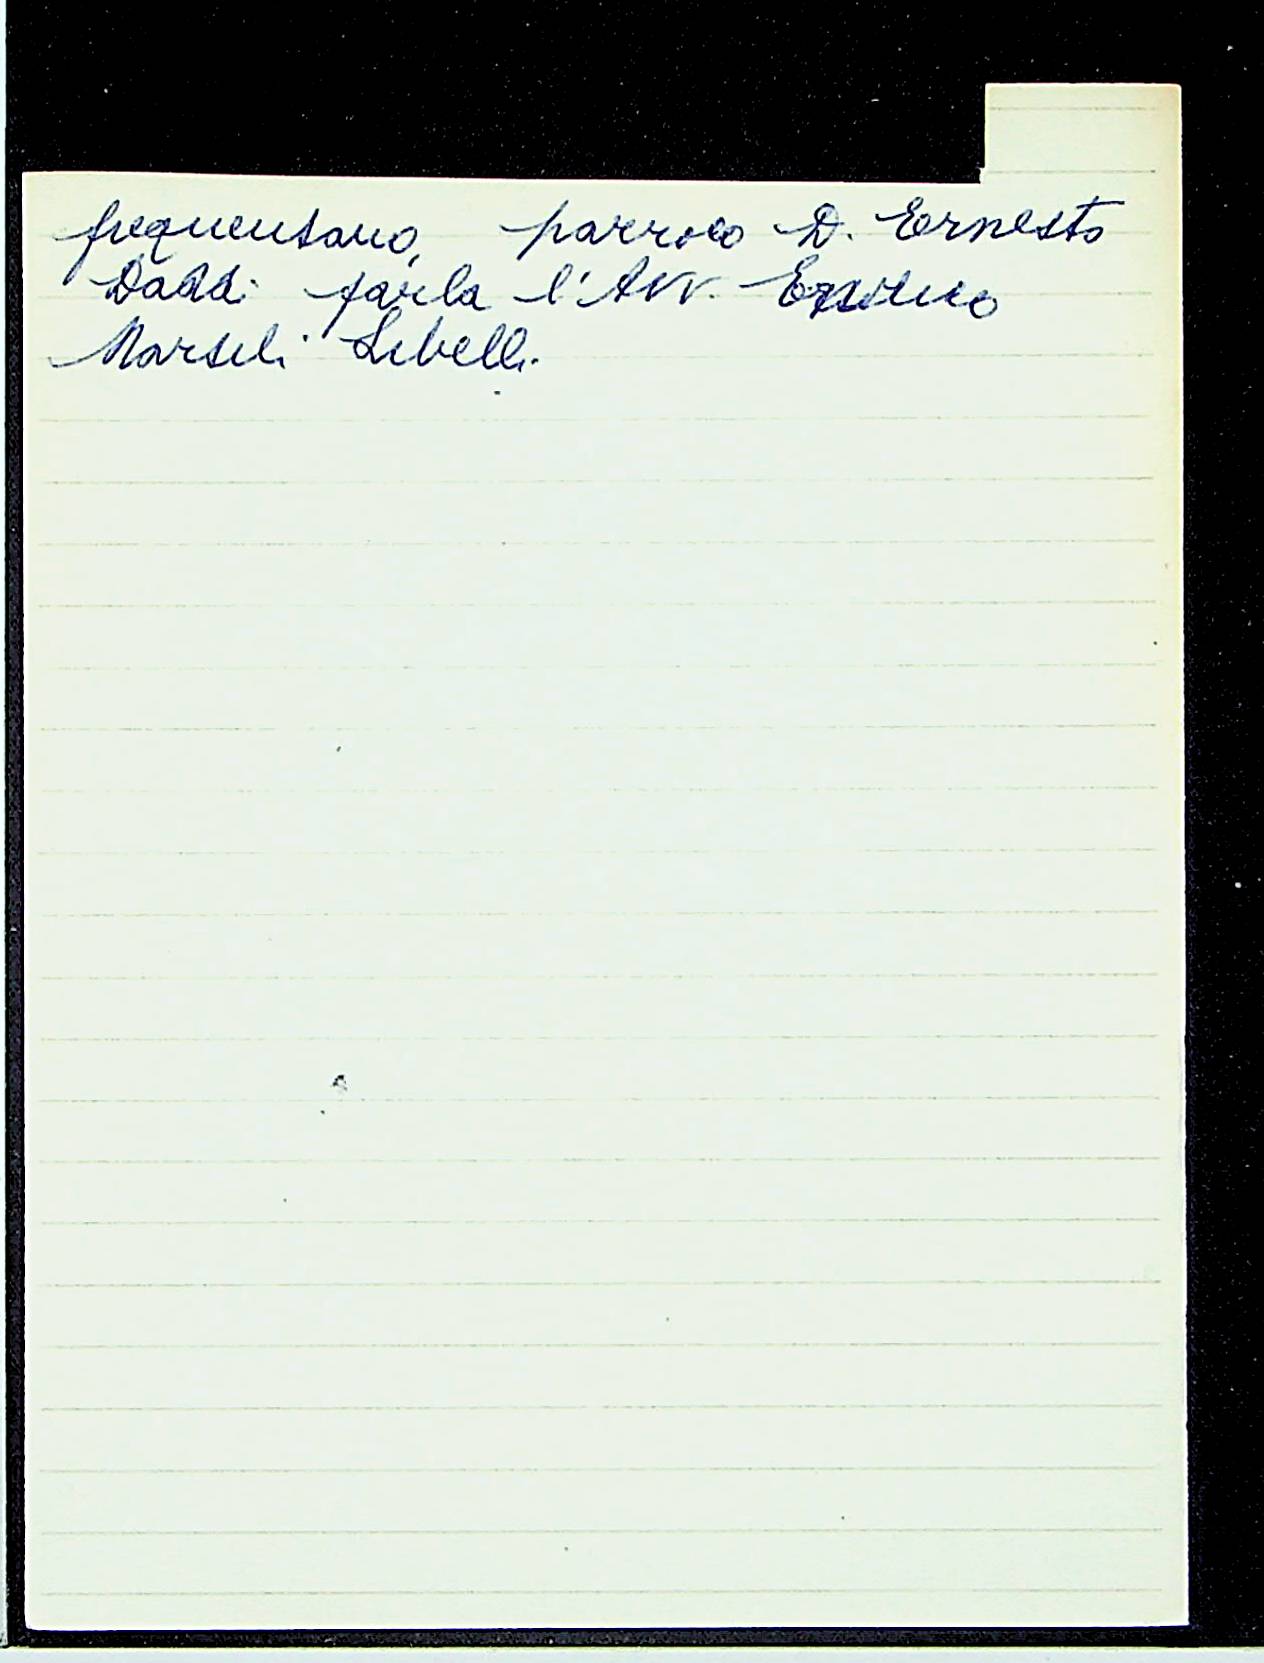 frequentano, parroco D. Ernesto
Daddi parla l'Avv.
Marsili Libelli.